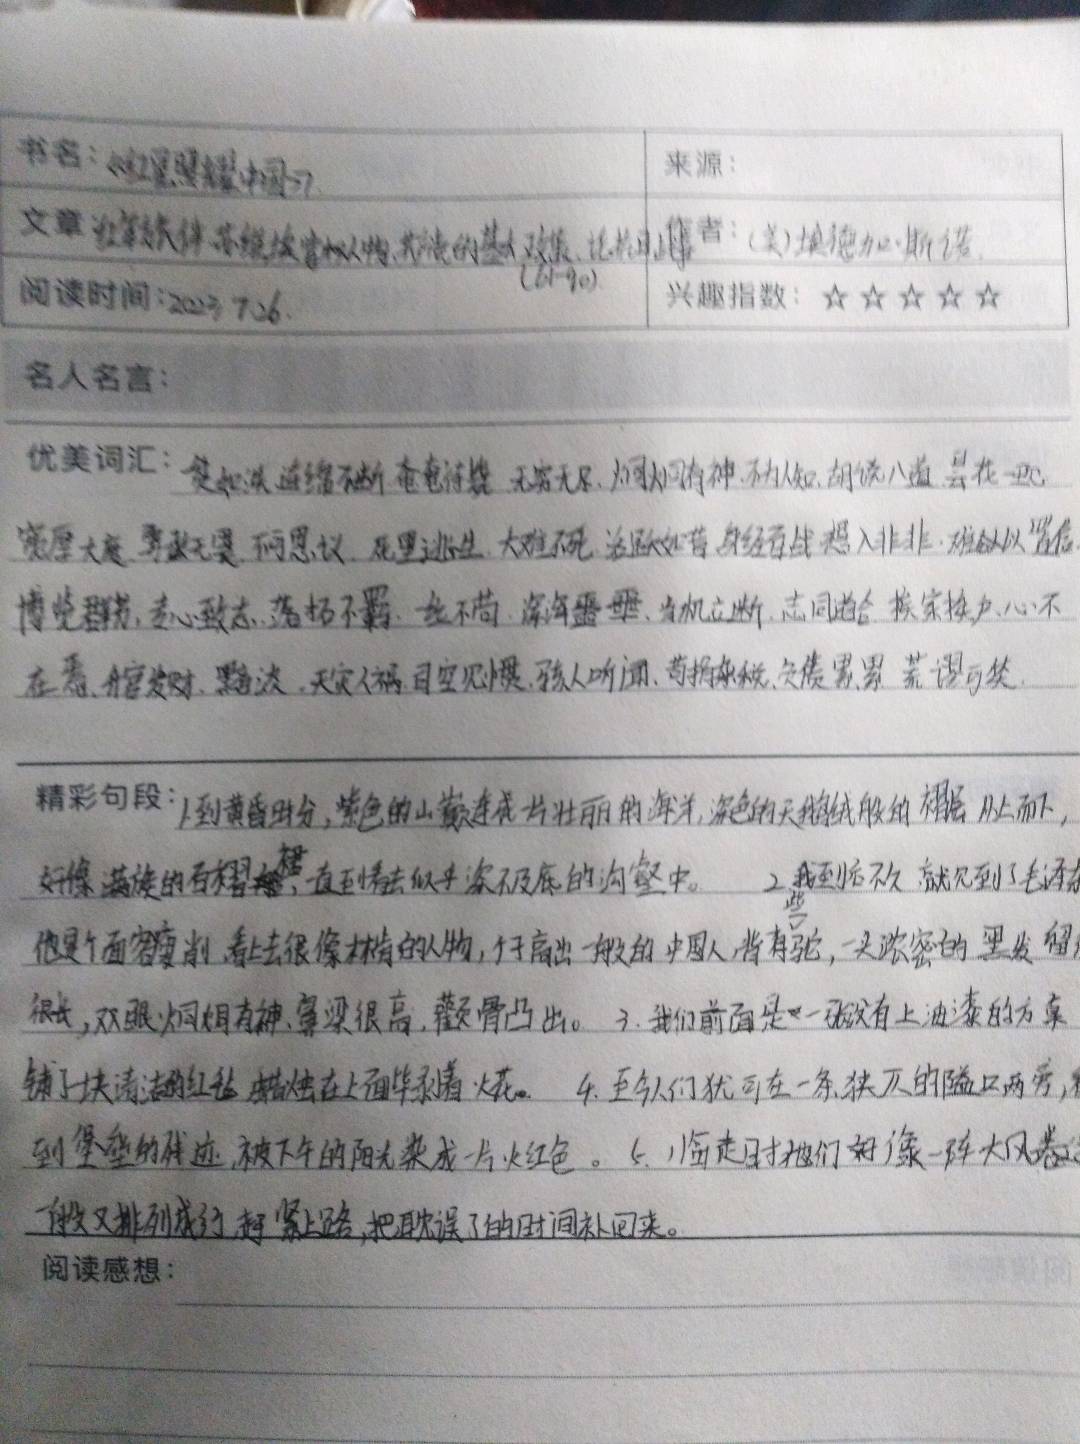 书名：《红星照耀中国》 来源：
文章 红军旅伴 苏维埃掌权人物、共产党的基本政策、论抗日战争 作者：（美）埃德加·斯诺
(61-90)
阅读时间：2023 7.26. 兴趣指数：☆☆☆☆☆
名人名言：
优美词汇： 连绵不断 奄奄待毙 无穷无尽、炯炯有神、不为人知、胡说八道 昙花一现
宽厚大度 勇敢无畏 不可思议 死里逃生 大难不死 活跃如昔 身经百战 想入非非、难以置信
博览群书、专心致志、落拓不羁、一丝不苟、深海 当机立断、志同道合 挨家挨户、心不
在焉、升官发财、黯淡、天灾人祸、司空见惯、骇人听闻、苛捐杂税、欠债累累 荒谬可笑
精彩句段：1.到黄昏时分，紫色的山巅连成一片壮丽的海洋，深色的天鹅绒般的褶层从上而下，
好像满族的百褶裙，一直到看去似乎深不及底的沟壑中。 2.我到后不久，就见到了毛泽东
他是个面容瘦削、看上去很像林肯的人物，个子高出一般的中国人，背有些驼，一头浓密的黑发留
很长，双眼炯炯有神、鼻梁很高，颧骨凸出。 3.我们前面是一张没有上油漆的方桌
铺了块清洁的红毡，蜡烛在上面毕剥着火花。 4.至今人们犹可在一条狭仄的隘口两旁，
到堡垒的残迹，被下午的阳光染成一片火红色。 5.临走时他们好像一阵大风卷
一般又排列成行，赶紧上路，把耽误了的时间补回来。
阅读感想：